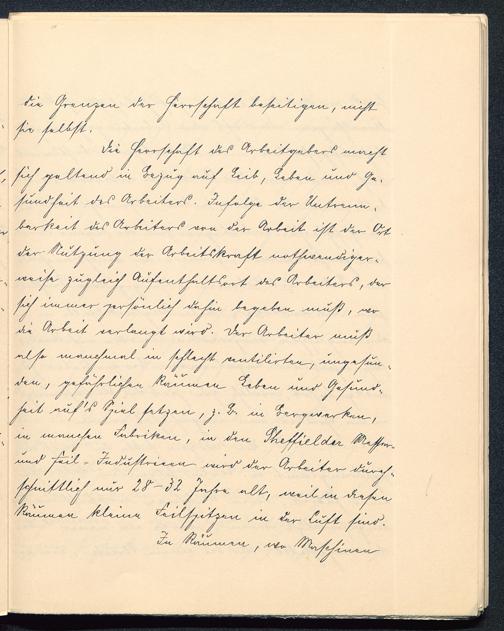 die Grenzen der Herrschaft beseitigen, nicht
sie selbst.
Die Herrschaft des Arbeitgebers macht
sich geltend in Bezug auf Leib, Leben und Ge-
sundheit des Arbeiters. Infolge der Untrenn-
barkeit des Arbeiters von der Arbeit ist der Ort
der Nutzung der Arbeitskraft nothwendiger-
weise zugleich Aufenthaltsort des Arbeiters, der
sich immer persönlich dahin begeben muß, wo
die Arbeit verlangt wird. Der Arbeiter muß
also manchmal in schlecht ventilirten, ungesun-
den, gefährlichen Räumen Leben und Gesund-
heit auf's Spiel setzen, z. B. in Bergwerken,
in manchen Fabriken, in den Sheffielder Messer-
und Feil-Industrieen wird der Arbeiter durch-
schnittlich nur 28-32 Jahre alt, weil in diesen
Räumen kleine Feilspitzen in der Luft sind.
In Räumen, wo Maschinen